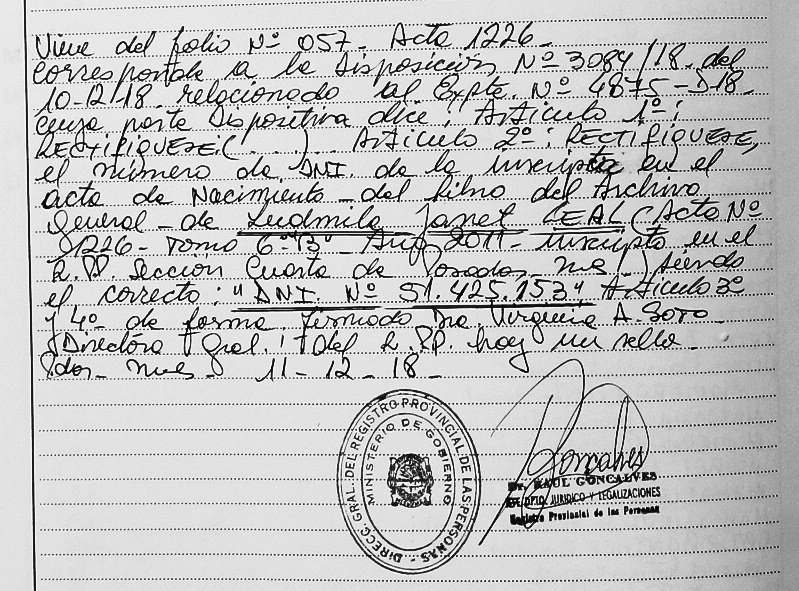 Viene del folio Nº 057- Acta 1226-
Corresponde a la Disposición Nº 3084/18 del
10-12-18 relacionado al Expte. Nº 4875-D-18-
cuya parte Dispositiva dice: Artículo 1º:
RECTIFIQUESE( ... ) Artículo 2º: RECTIFIQUESE,
el número de DNI. de la inscripta en el
acta de Nacimiento - del libro del Archivo
General - de Ludmila Janet LEAL (Acta Nº
1226 - Tomo 6º - Año 2011 - inscripta en el
R.PP. Sección Cuarta de Posadas Mnes.) siendo
el correcto: "DNI. Nº 51.425.153" Artículo 3º
y 4º de forma. Firmado Dra. Virginia A. Soto-
Directora Gral. del R.PP. hay un sello-
Pdas- Mnes- 11-12-18-
DIRECC. GRAL. DEL REGISTRO PROVINCIAL DE LAS PERSONAS
MINISTERIO DE GOBIERNO
Goncalves
Dr. RAUL GONCALVES
DPTO. JURIDICO Y LEGALIZACIONES
Registro Provincial de las Personas